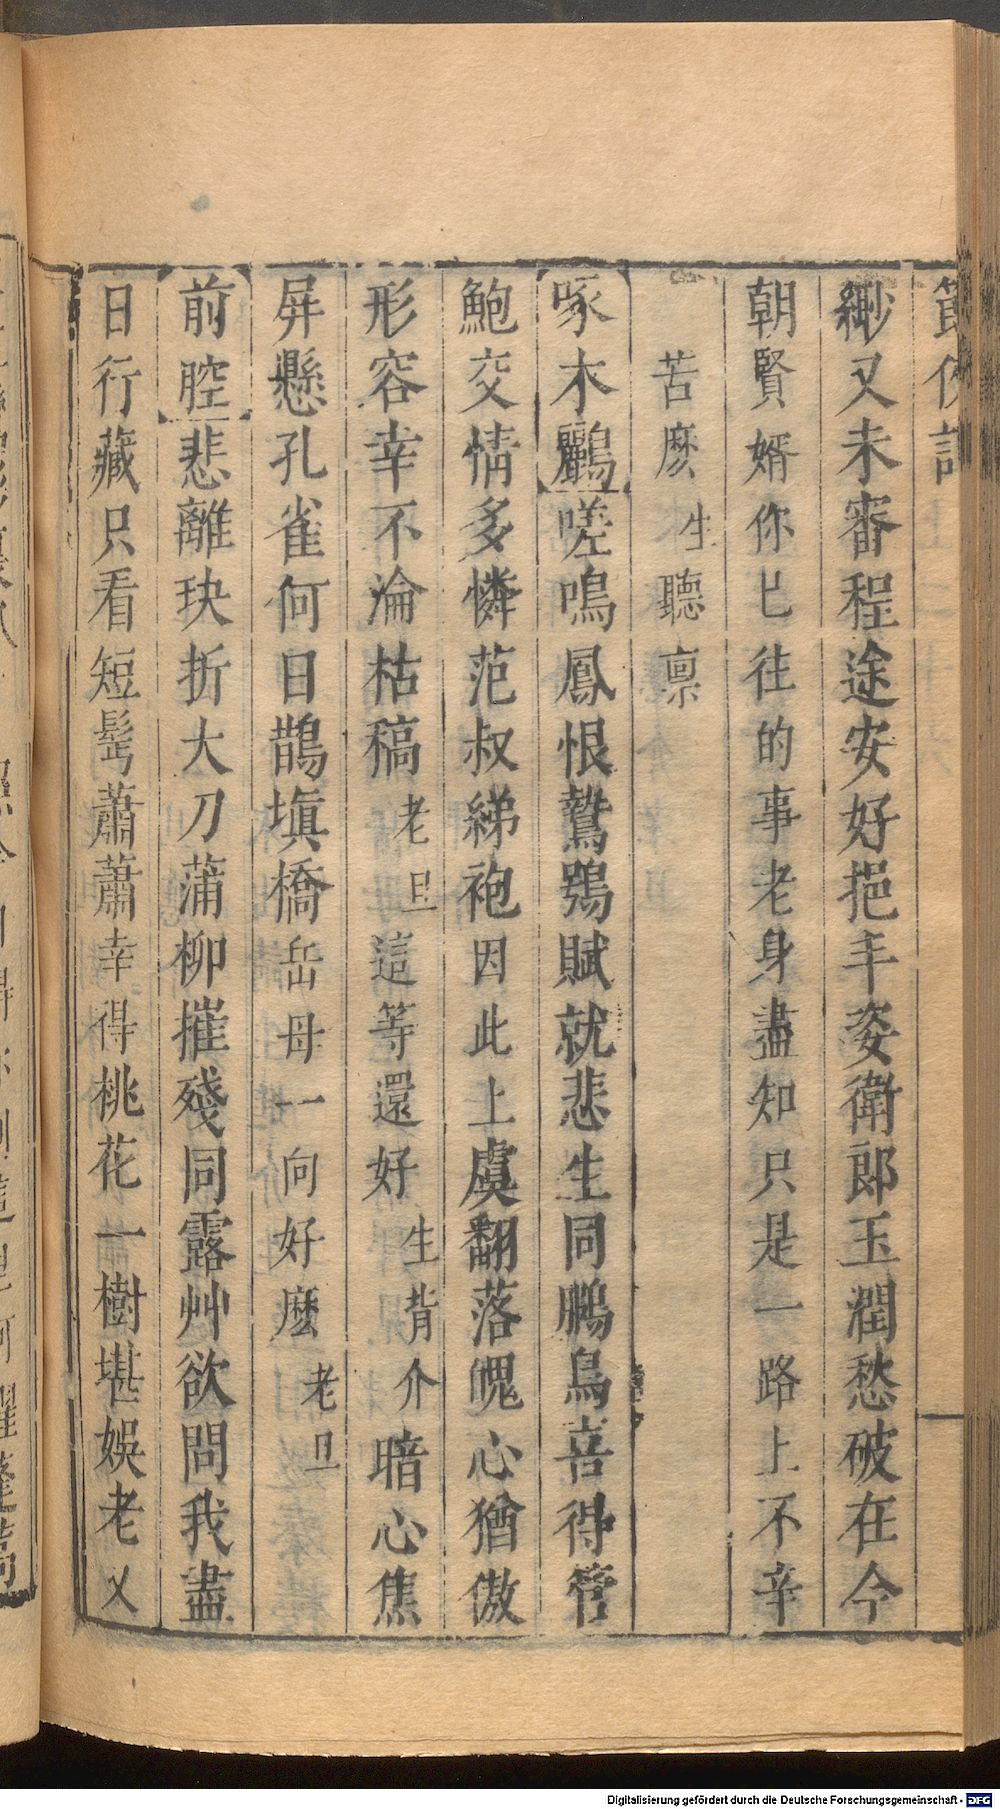 節俠記
緲又未審程途安好挹丰姿衛郎玉潤愁破在今
朝賢婿你已往的事老身盡知只是一路上不辛
苦麽生聽禀
啄木鸝嗟鳴鳳恨鷙鴞賦就悲生同鵩鳥喜得管
鮑交情多憐范叔綈袍因此上虞翻落魄心猶傲
形容幸不淪枯稿老旦這等還好生背介暗心焦
屏懸孔雀何日鵲塡橋岳母一向好麽老旦
前腔悲離玦折大刀蒲柳摧殘同露艸欲問我盡
日行藏只看短髩蕭蕭幸得桃花一樹堪娛老乂
Digitalisierung gefördert durch die Deutsche Forschungsgemeinschaft - DFG